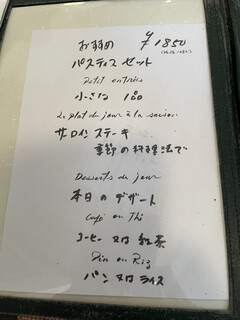 おすすめ ¥1850
パスティス セット
Petit entrées
小さな 1品
Le plat du jour à la saison
サーロイン ステーキ
季節の料理法で
Desserts du jour
本日の デザート
Café ou Thé
コーヒー 又は 紅茶
Pin ou Riz
パン 又は ライス